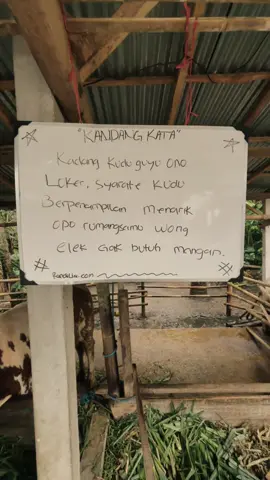 "KANDANG KATA"
Kadang Kudu guyu ono
Loker, Syarate Kudu
Berpenampilan Menarik
opo rumangsamu wong
elek Gak butuh mangan.